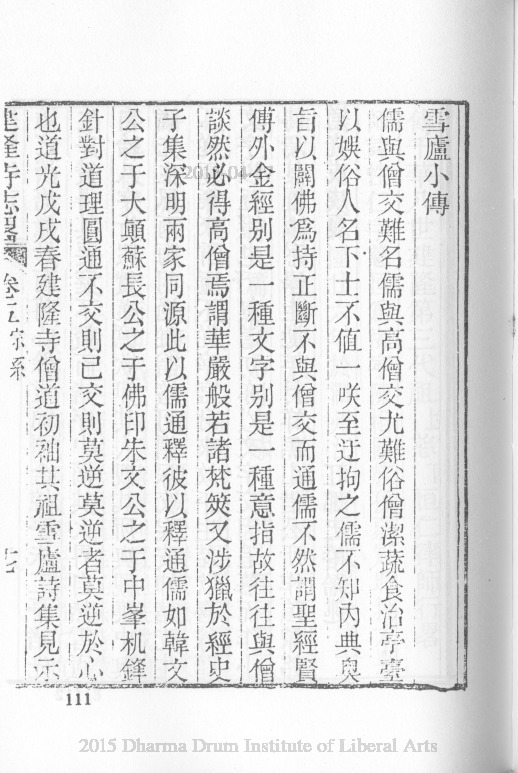 雪廬小傳
儒與僧交難名儒與高僧交尤難俗僧潔蔬食治亭臺
以娛俗人名下士不值一咲至迂拘之儒不知內典奧
旨以闢佛爲持正斷不與僧交而通儒不然謂聖經賢
傳外金經別是一種文字別是一種意指故往往與僧
談然必得高僧焉謂華嚴般若諸梵筴又涉獵於經史
子集深明兩家同源此以儒通釋彼以釋通儒如韓文
公之于大顚蘇長公之于佛印朱文公之于中峯机鋒
針對道理圓通不交則已交則莫逆莫逆者莫逆於心
也道光戊戌春建隆寺僧道初袖其祖雪廬詩集見示
建隆寺志畧 卷之五宗系 十七
111
2015 Dharma Drum Institute of Liberal Arts